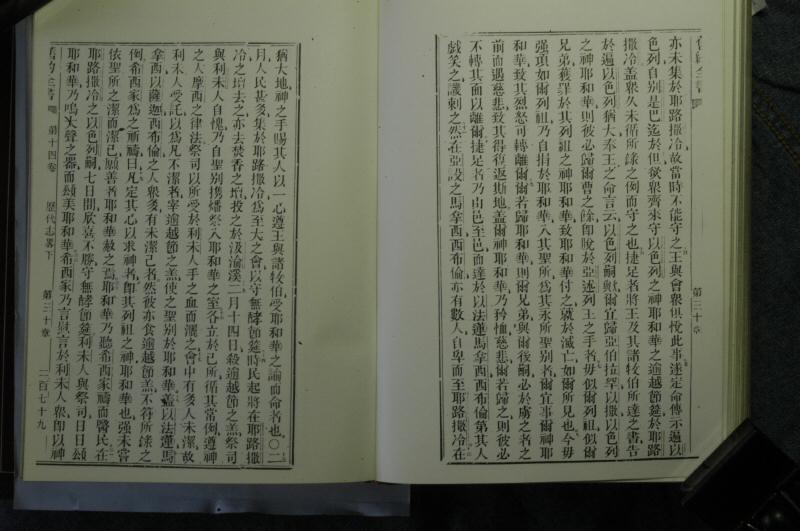 亦未集於耶路撒冷故當時不能守之王與會衆俱悅此事遂定命傳示遍以
色列自別是巴迄於但俟衆齊來守以色列之神耶和華之逾越節筵於耶路
撒冷盖衆久未循所錄之例而守之也捷足者將王及其諸牧伯所達之書告
於遍以色列猶大奉王之命言云以色列嗣歟爾宜歸亞伯拉罕以撒以色列
之神耶和華則彼必歸爾曹之餘卽脫於亞述列王之手者毋似爾列祖似爾
兄弟獲罪於其列祖之神耶和華致耶和華付之就於滅亡如爾所見也今毋
强項如爾列祖乃自捐於耶和華入其聖所爲其永所聖別者爾宜事爾神耶
和華致其烈怒可轉離爾爾若歸耶和華則爾兄弟與爾後嗣必於虜之者之
前而遇慈悲致其得復返斯地盖爾神耶和華乃矜恤慈悲爾若歸之則彼必
不轉其面以離爾捷足者乃由邑至邑而達於以法蓮馬拿西西布倫第其人
戲笑之譏刺之然在亞設之馬拿西西布倫亦有數人自卑而至耶路撒冷在
第三十章
猶大地神之手賜其人以一心遵王與諸牧伯受耶和華之諭而命者也○二
月人民甚多集於耶路撒冷爲至大之會以守無酵節筵時民起將在耶路撒
冷之壇去之亦去焚香之壇投之於汲淪溪二月十四日殺逾越節之羔祭司
與利未人自愧乃自聖別携燔祭入耶和華之室各立於己所循其當例遵神
之人摩西之律法祭司以所受於利未人手之血而灑之會中有多人未潔故
利未人受託以爲凡不潔者宰逾越節之羔使之聖別於耶和華盖以法蓮馬
拿西以薩迦西布倫之人衆多有未潔己者然彼亦食逾越節羔不符所錄之
例希西家爲之祈禱曰凡定其心以求神者卽其列祖之神耶和華也强未嘗
依聖所之潔而潔己願善者耶和華赦之焉耶和華乃聽希西家禱而醫民在
耶路撒冷之以色列嗣七日間欣喜不勝守無酵節筵利未人與祭司日日頌
耶和華乃鳴大聲之器而頌美耶和華希西家乃言慰言於利未人衆卽以神
舊約全書 第十四卷 歷代志畧下 第三十章 二百七十九